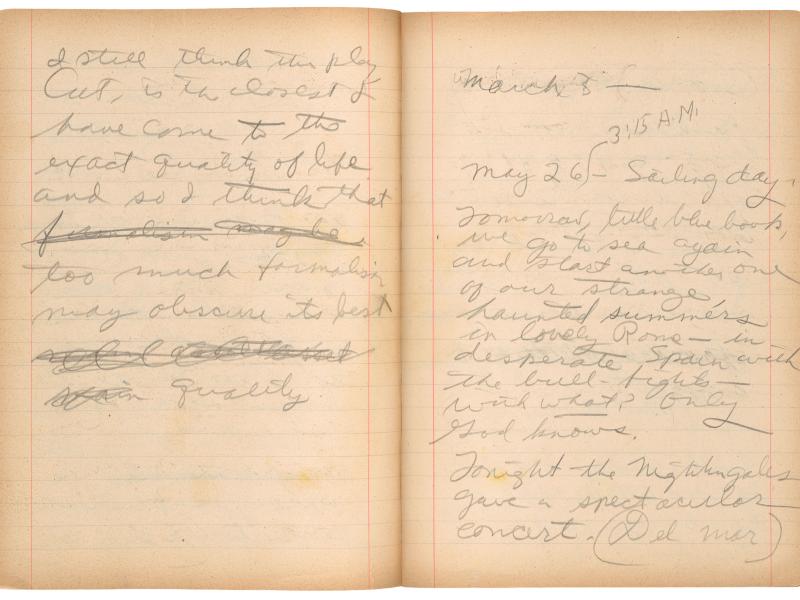 I still think the play
Cat, is the closest I
have come to the
exact quality of life
and so I think that
formalism maybe,
too much formalism
may obscure its best
quality
March 3 —
3:15 A.M.
May 26 — Sailing day.
Tomorrow, little blue book,
we go to sea again
and start another one
of our strange
haunted summers
in lovely Rome — in
desperate Spain with
the bull-fights —
with what? Only
God knows.
Tonight the Nightingales
gave a spectacular
concert. (Del mar)